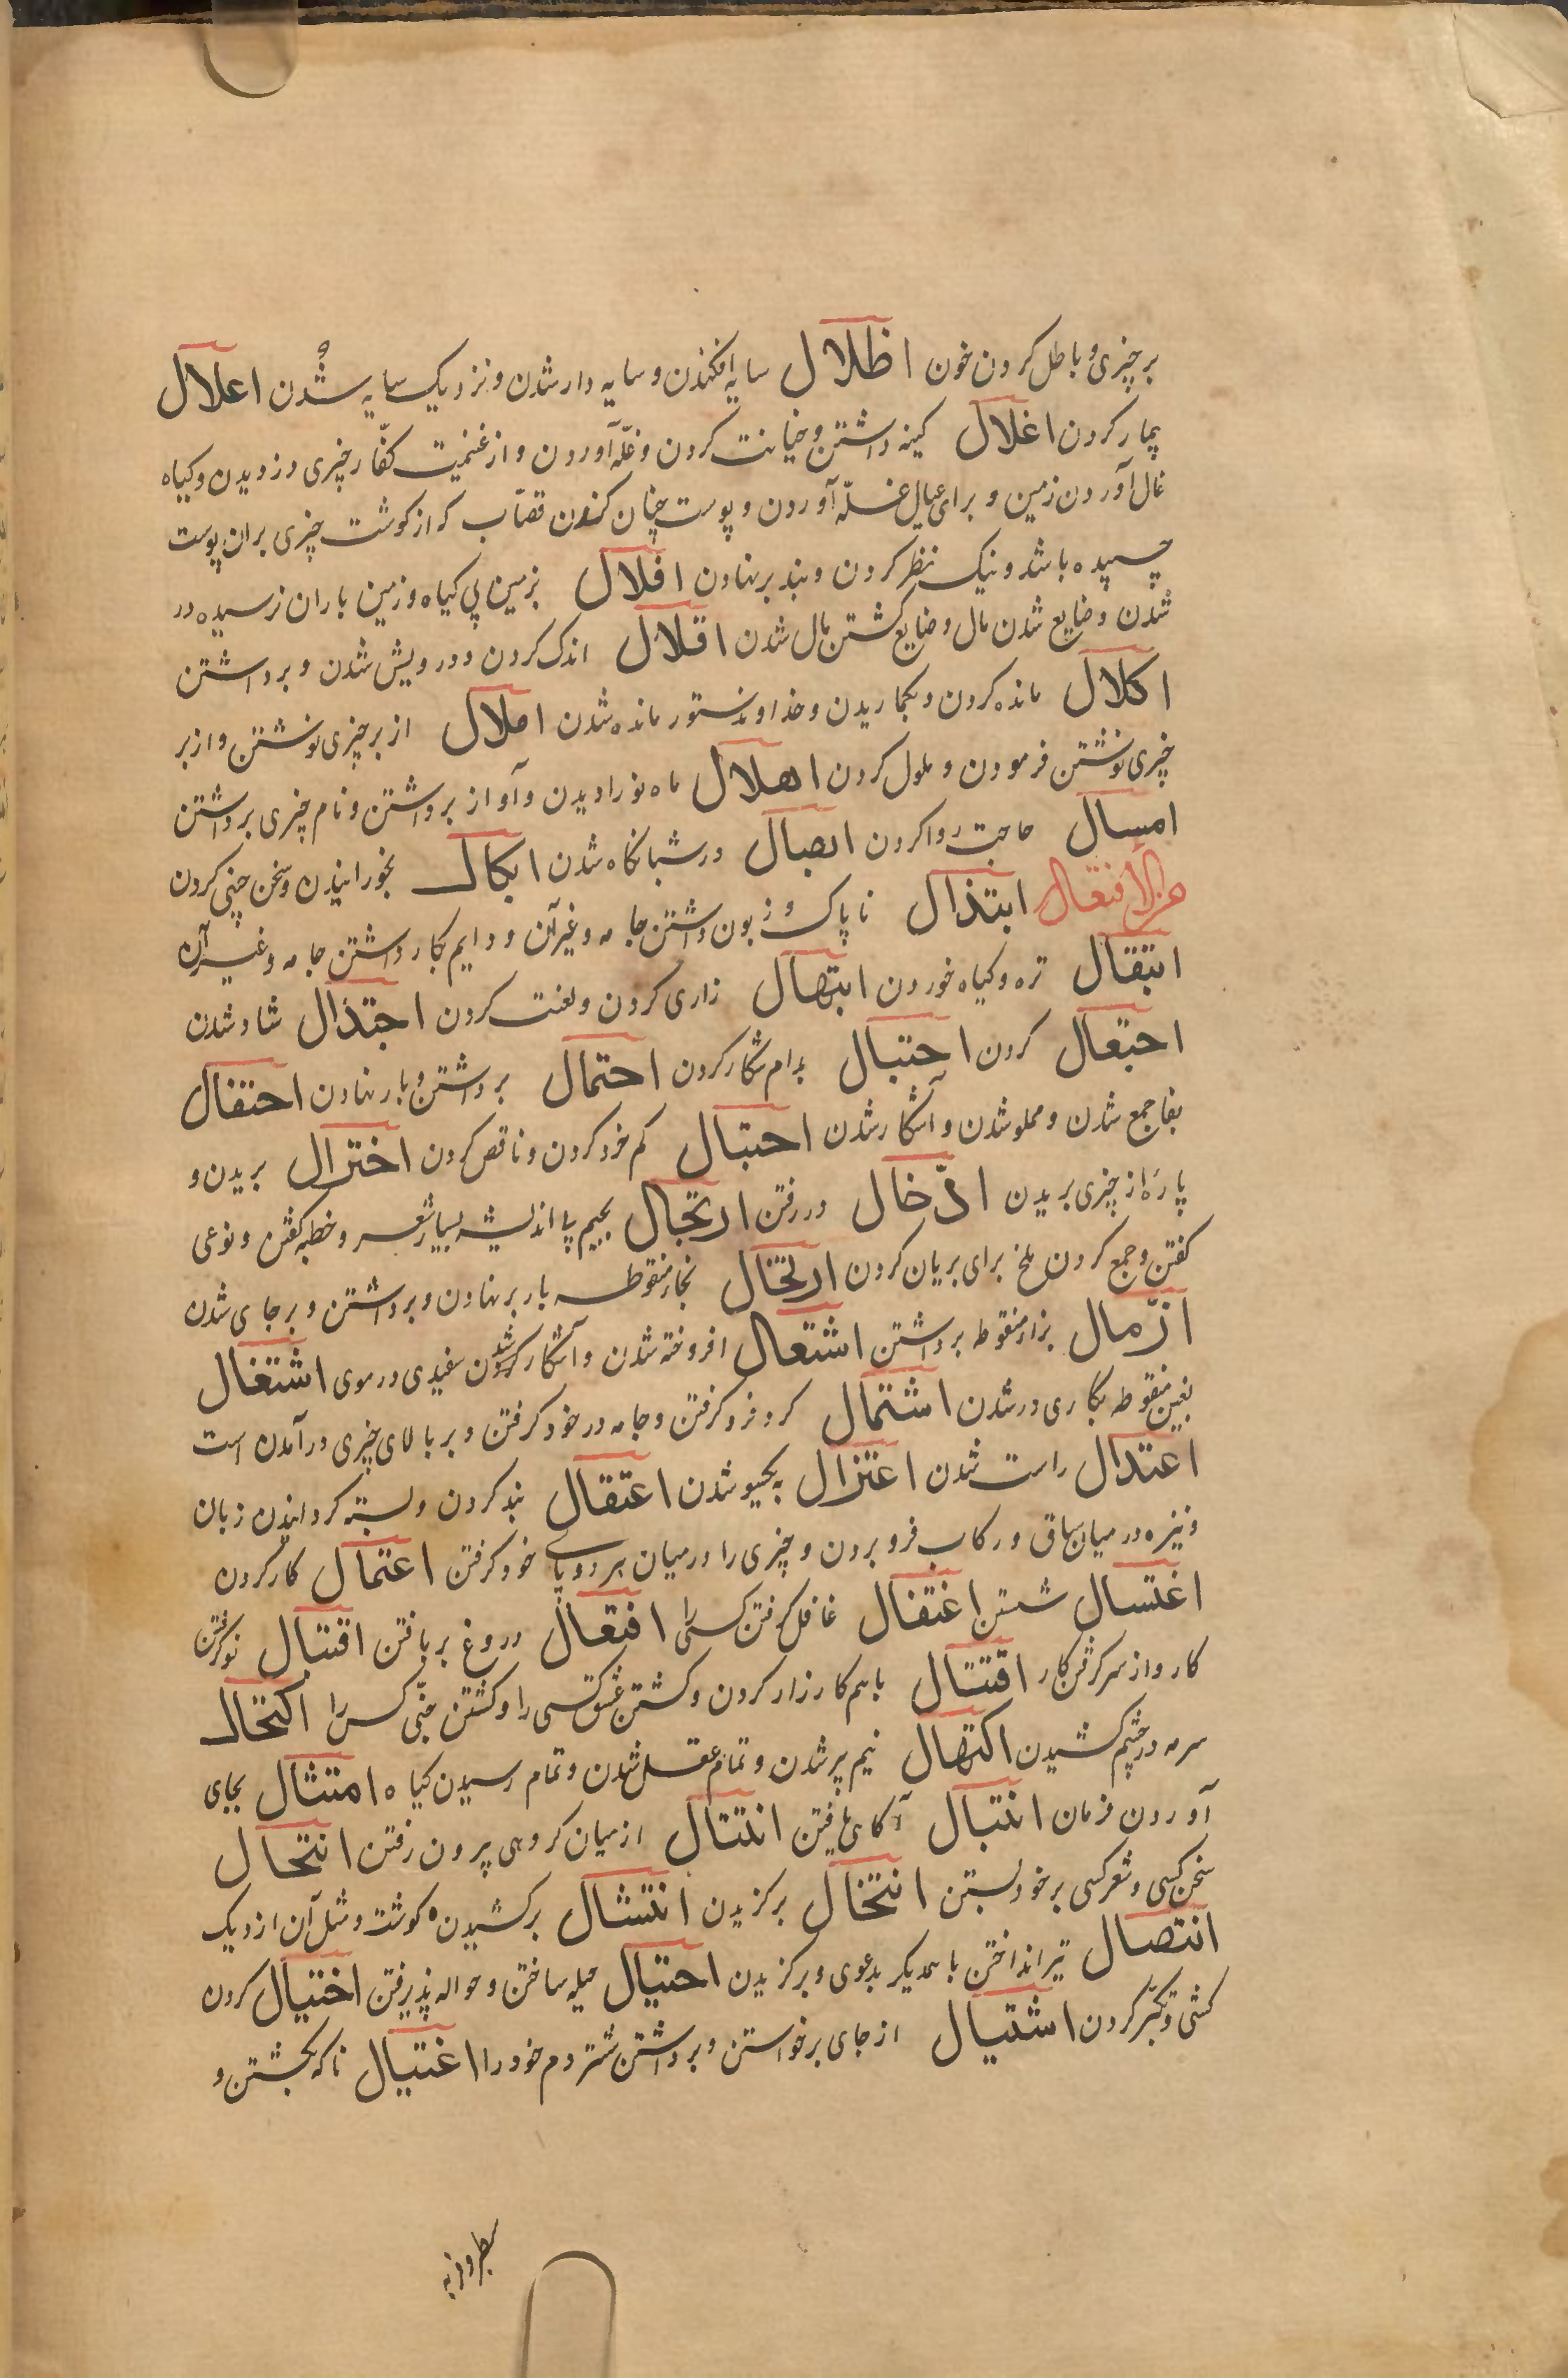 بر چیزی و باطل کردن خون اظلال سایه افکندن و سایه دار شدن و نزدیک سایه شدن اعلال
بیمار کردن اغلال کینه داشتن و خیانت کردن و غلّه آوردن و از غنیمت کفّار چیزی دزدیدن و کیاه
غال آوردن زمین و برای عیال غلّه آوردن و پوست چنان کندن قصّاب که از کوشت چیزی بران پوست
چسپیده باشد و نیک نظر کردن و بند بر نهادن افلال بزمین بی کیاه و زمین باران نرسیده در
شدن و ضایع شدن مال و ضایع کشتن مال شدن اقلال اندک کردن و درویش شدن و برداشتن
اکلال مانده کردن و بکماریدن و خداوند ستور مانده شدن املال از بر چیزی نوشتن و از بر
چیزی نوشتن فرمودن و ملول کردن اهلال ماه نو را دیدن و آواز برداشتن و نام چیزی برداشتن
امسال حاجت روا کردن ابصال در شبانکاه شدن ایکال بخورانیدن و سخن چینی کردن
من الافتعال ابتذال ناپاک و زبون داشتن جامه و غیر آن و دایم بکار داشتن جامه و غیر آن
ابتقال تره و کیاه خوردن ابتهال زاری کردن و لعنت کردن اجتذال شاد شدن
اجتعال کردن احتبال بدام شکار کردن احتمال برداشتن و بار نهادن احتفال
بفا جمع شدن و مملو شدن و آشکار شدن احتبال کم خرد کردن و ناقص کردن اختزال بریدن و
پارۀ از چیزی بریدن ادّخال در رفتن ارتجال بجیم بی اندیشه بسیار شعر و خطبه کفتن و نوعی
کفتن و جمع کردن ملخ برای بریان کردن ارتحال بحار منقوطه بار بر نهادن و برداشتن و بر جای شدن
ازّمال بزاء منقوطه برداشتن اشتعال افروخته شدن و آشکار شدن سفیدی در موی اشتغال
بغین منقوطه بکاری در شدن اشتمال کرد فرو کرفتن و جامه در خود کرفتن و بر بالای چیزی درآمدن است
اعتدال راست شدن اعتزال بیکسو شدن اعتقال بند کردن و بسته کردانیدن زبان
و نیزه در میان ساق و رکاب فرو بردن و چیزی را در میان هر دو پای خود کرفتن اعتمال کار کردن
اغتسال شستن اغتفال غافل کرفتن کسی را افتعال دروغ بر بافتن اقتبال نو کرفتن
کار و از سر کرفتن کار اقتتال باهم کارزار کردن و کشتن عشق کسی را و کشتن جنّی کسی را اکتحال
سرمه در چشم کشیدن اکتهال نیم پیر شدن و تمام عقل شدن و تمام رسیدن کیاه امتثال بجای
آوردن فرمان انتبال آکاهی یافتن انتتال از میان کروهی بیرون رفتن انتحال
سخن کسی و شعر کسی بر خود بستن انتخال برکزیدن انتشال برکشیدن کوشت و مثل آن از دیک
انتصال تیر انداختن با همدیکر بدعوی و برکزیدن احتیال حیله ساختن و حواله پذیرفتن اختیال کردن
کشی و تکبّر کردن اشتیال از جای برخواستن و برداشتن شتر دم خود را اغتیال ناکه بکشتن و